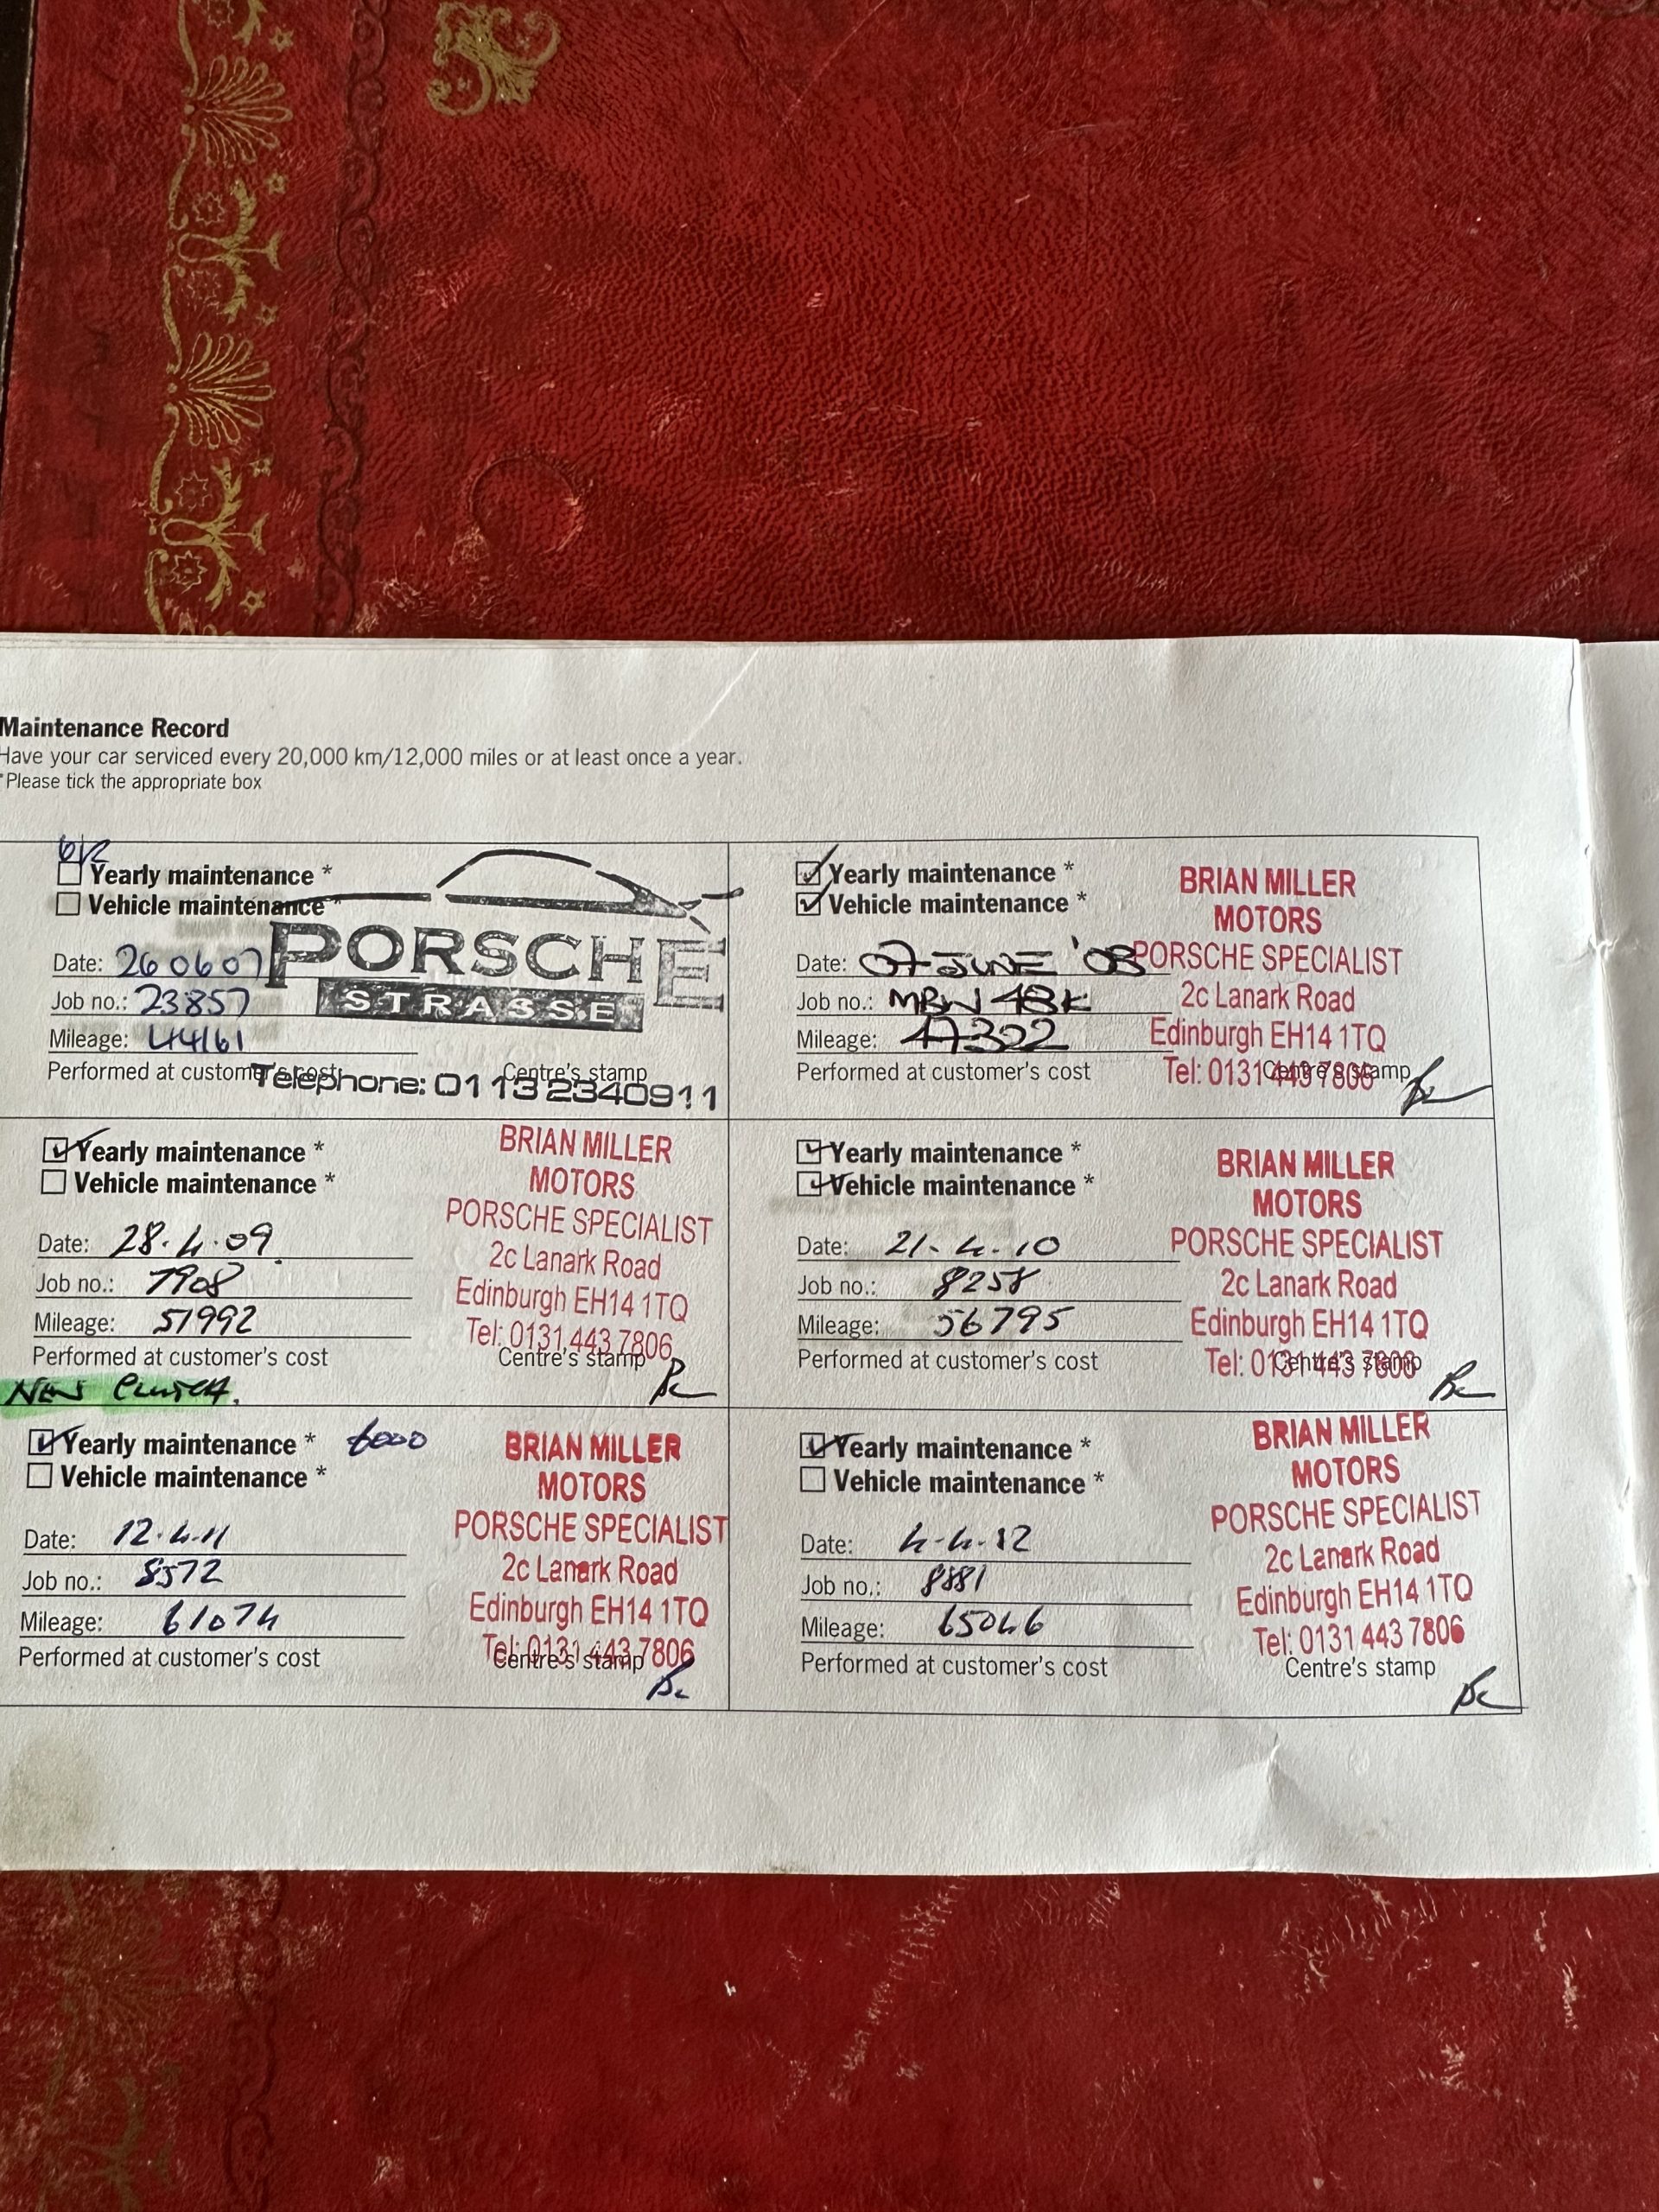 Maintenance Record
Have your car serviced every 20,000 km/12,000 miles or at least once a year.
*Please tick the appropriate box
Yearly maintenance *
Vehicle maintenance *
Date: 260607
Job no.: 23857
Mileage: 44161
Performed at customer's cost
Centre's stamp
PORSCHE
STRASSE
Telephone: 0113 2340911
Yearly maintenance *
Vehicle maintenance *
Date: 07 JUNE '08
Job no.: MBW 48K
Mileage: 47322
Performed at customer's cost
BRIAN MILLER
MOTORS
PORSCHE SPECIALIST
2c Lanark Road
Edinburgh EH14 1TQ
Tel: 0131 443 7806
Centre's stamp
Yearly maintenance *
Vehicle maintenance *
Date: 28.4.09
Job no.: 7908
Mileage: 51992
Performed at customer's cost
NEW CLUTCH.
BRIAN MILLER
MOTORS
PORSCHE SPECIALIST
2c Lanark Road
Edinburgh EH14 1TQ
Tel: 0131 443 7806
Centre's stamp
Yearly maintenance *
Vehicle maintenance *
Date: 21.4.10
Job no.: 8258
Mileage: 56795
Performed at customer's cost
BRIAN MILLER
MOTORS
PORSCHE SPECIALIST
2c Lanark Road
Edinburgh EH14 1TQ
Tel: 0131 443 7806
Centre's stamp
Yearly maintenance * 6000
Vehicle maintenance *
Date: 12.4.11
Job no.: 8572
Mileage: 61074
Performed at customer's cost
BRIAN MILLER
MOTORS
PORSCHE SPECIALIST
2c Lanark Road
Edinburgh EH14 1TQ
Tel: 0131 443 7806
Centre's stamp
Yearly maintenance *
Vehicle maintenance *
Date: 4.4.12
Job no.: 8881
Mileage: 65046
Performed at customer's cost
BRIAN MILLER
MOTORS
PORSCHE SPECIALIST
2c Lanark Road
Edinburgh EH14 1TQ
Tel: 0131 443 7806
Centre's stamp